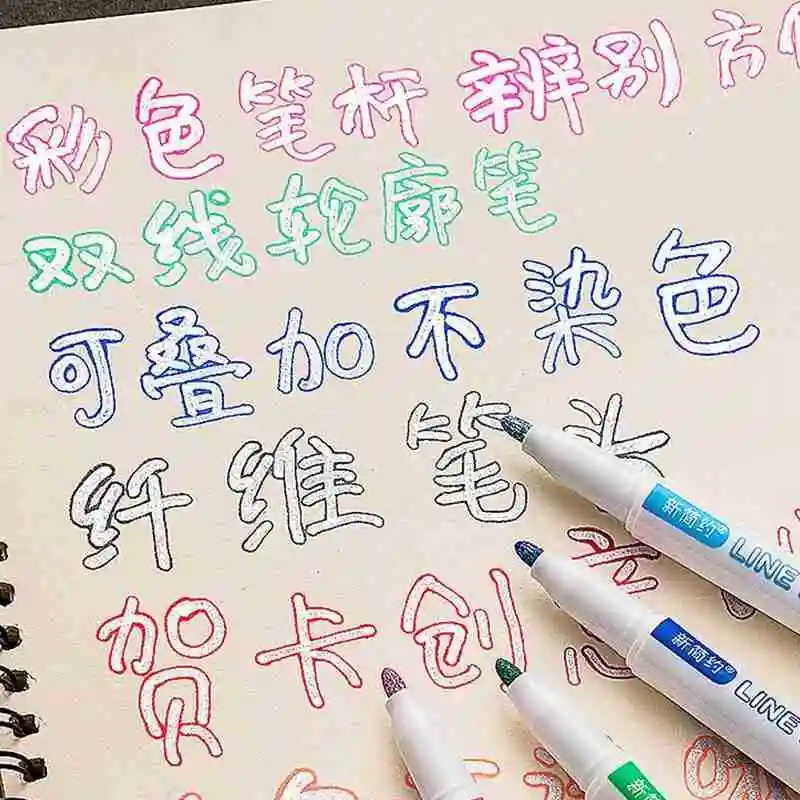 彩色笔杆 辨别方便
双线轮廓笔
可叠加不染色
纤维笔头
贺卡创意
新简约® LINE
新简约® LINE
新